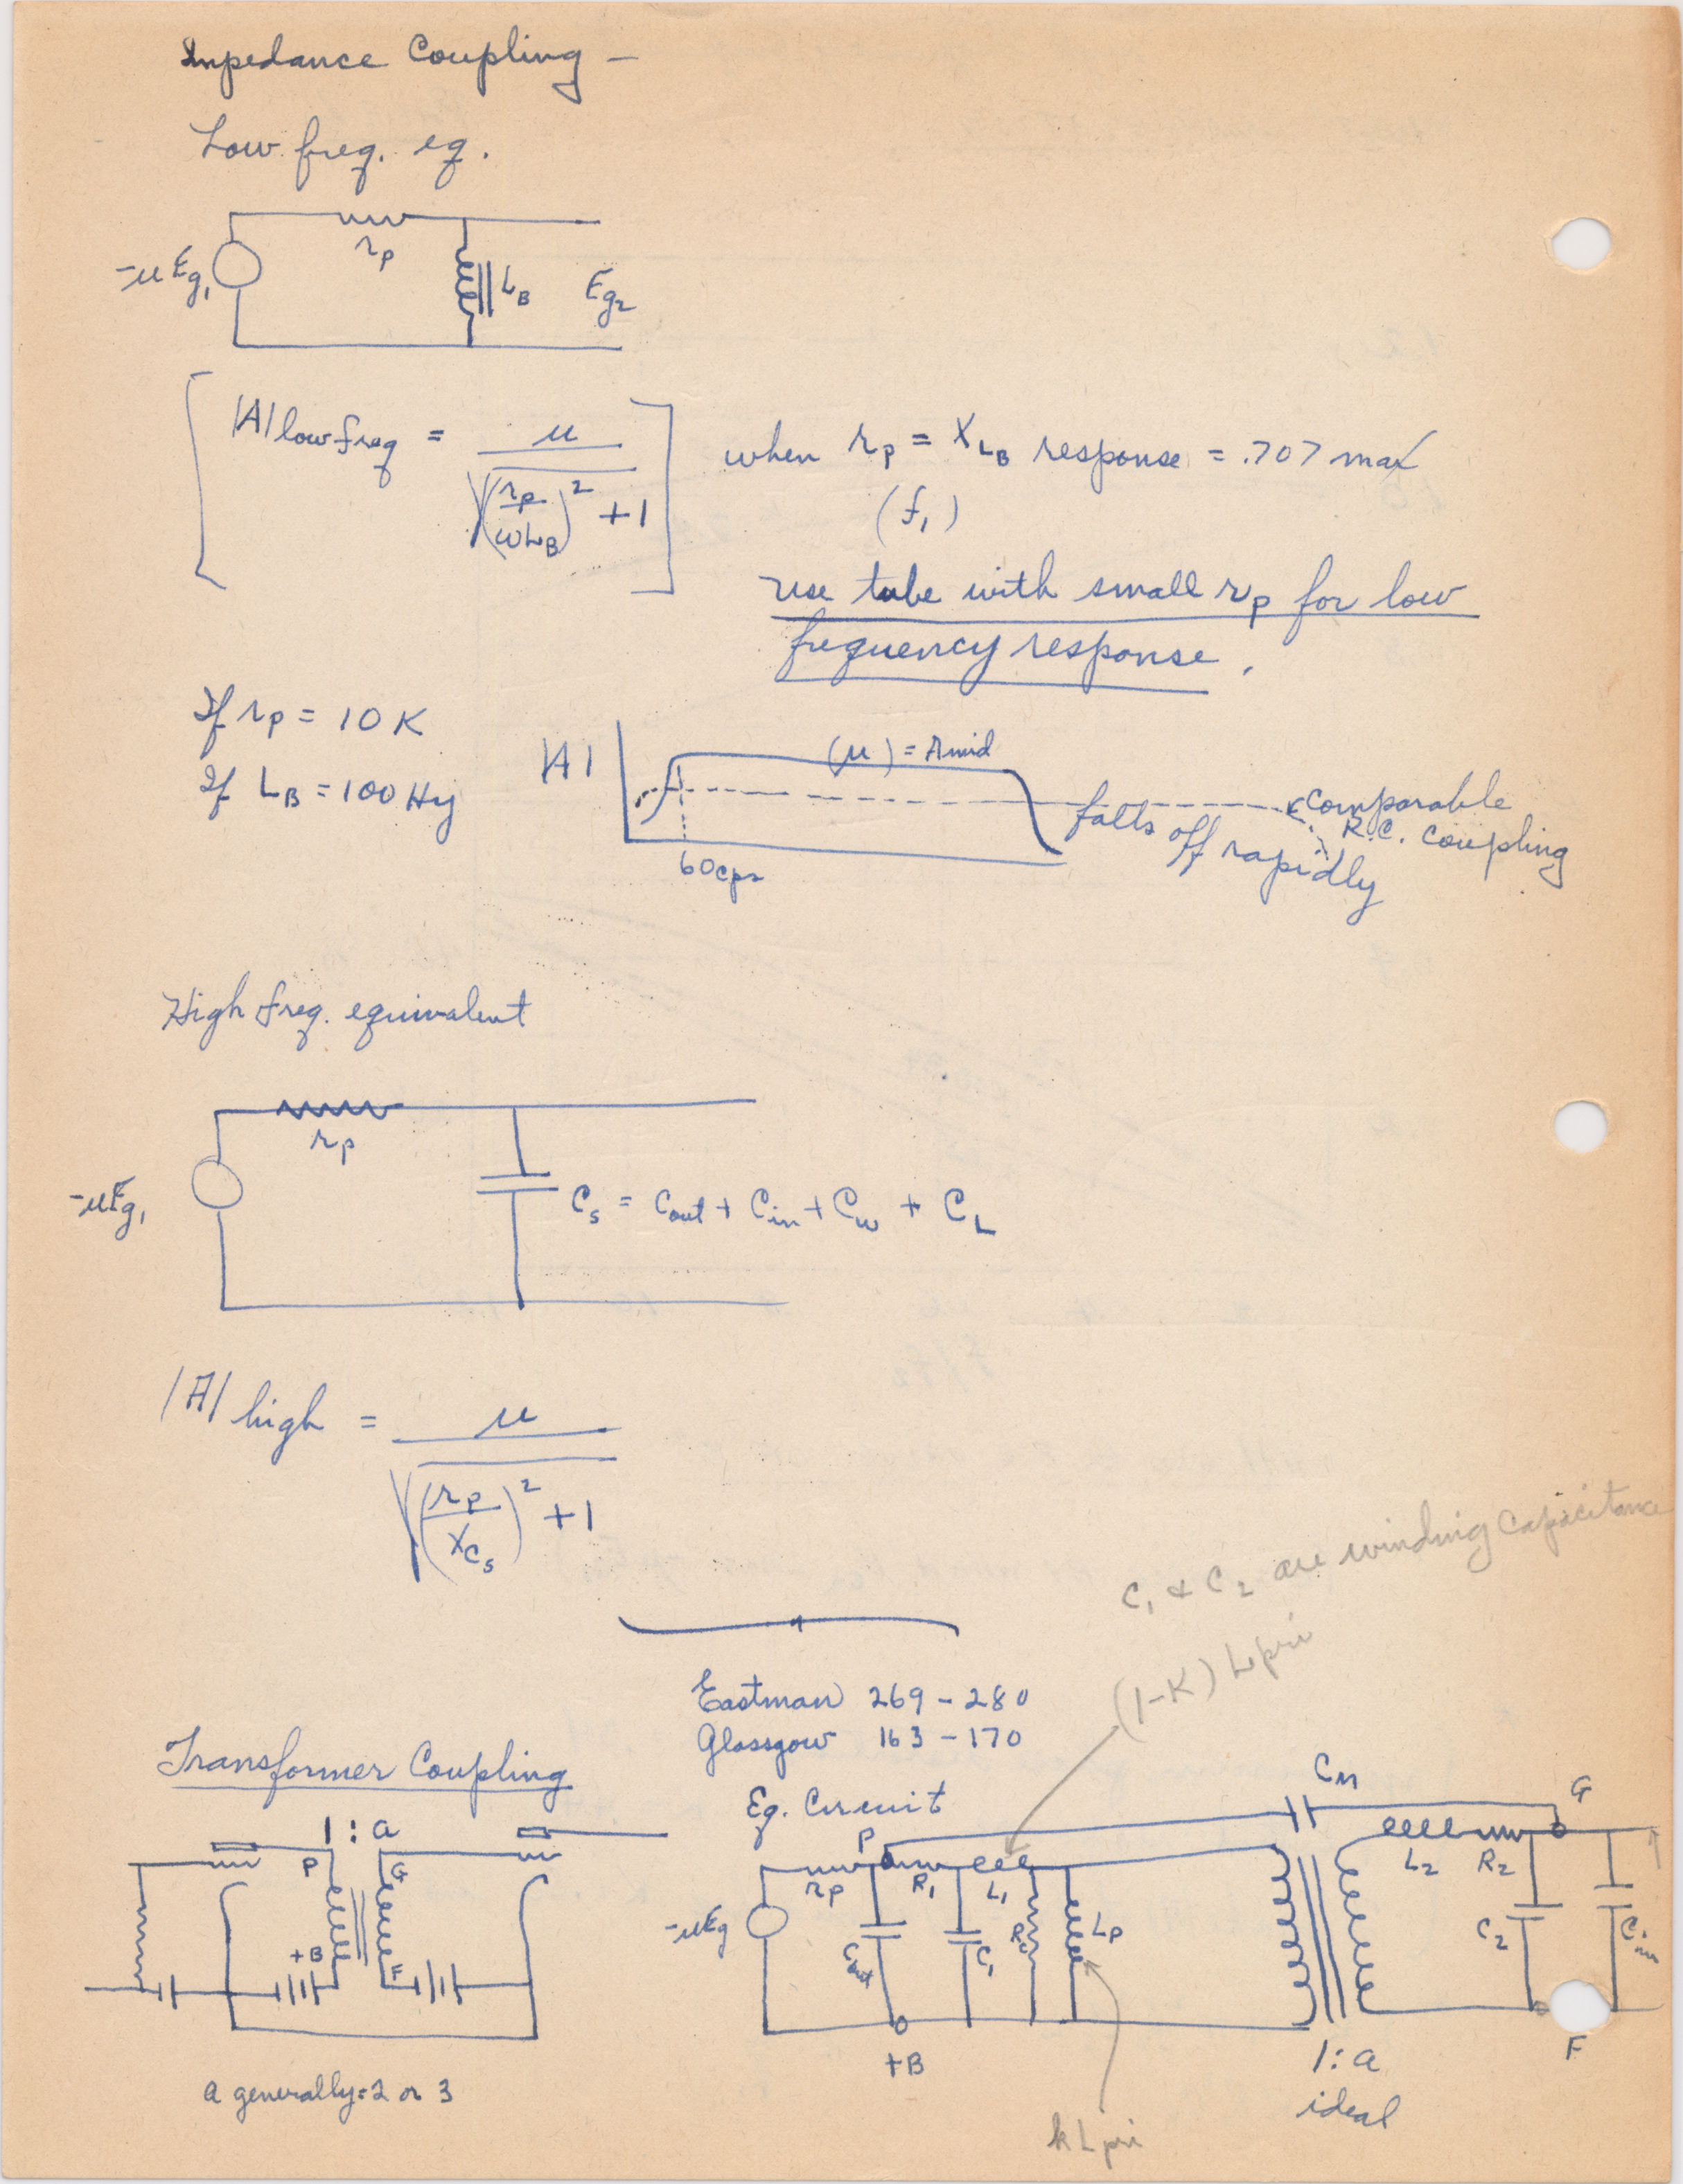 Impedance Coupling -
Low freq. eq.
rp
-μEg1
LB
Eg2
|A| low freq = μ / √((rp/ωLB)² + 1)
when rp = XLB response = .707 max
(f1)
use tube with small rp for low
frequency response.
If rp = 10 K
If LB = 100 Hy
|A|
(μ) = Amid
60 cps
falls off rapidly
comparable
R.C. coupling
High freq. equivalent
rp
-μEg1
Cs = Cout + Cin + Cw + CL
|A| high = μ / √((rp/XCs)² + 1)
C1 & C2 are winding capacitance
(1-K) Lpri
Eastman 269-280
Glassgow 163-170
Transformer Coupling
1:a
P
G
+B
F
a generally = 2 or 3
Eq. Circuit
Cm
G
P
rp
R1
L1
L2
R2
-μEg
Cout
C1
Rc
Lp
C2
Cin
+B
1:a
ideal
F
kLpri